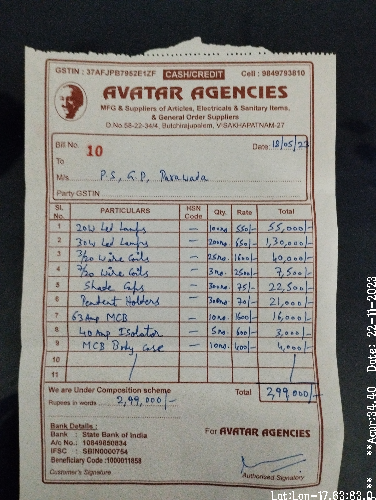 GSTIN : 37AFJPB7952E1ZF CASH/CREDIT Cell : 9849793810
AVATAR AGENCIES
MFG & Suppliers of Articles, Electricals & Sanitary Items,
& General Order Suppliers
D.No.58-22-34/4, Butchirajupalem, VISAKHAPATNAM-27
Bill No. 10 Date: 18/05/23
To
M/s P.S, G.P, Parawada
Party GSTIN
SL No. PARTICULARS HSN Code Qty. Rate Total
1 20W Led Lamps — 100no 550/- 55,000/-
2 30W Led Lamps — 200no 650/- 1,30,000/-
3 3/20 Wire Coils — 25no 1600/- 40,000/-
4 7/20 Wire Coils — 3no 2500/- 7,500/-
5 Shade Caps — 300no 75/- 22,500/-
6 Pendent Holders — 300no 70/- 21,000/-
7 63Amp MCB — 10no 1600/- 16,000/-
8 40Amp Isolator — 5no 600/- 3,000/-
9 MCB Body, Case — 10no 400/- 4,000/-
10
11
We are Under Composition scheme Total 2,99,000/-
Rupees in words 2,99,000/-
Bank Details :
Bank : State Bank of India
A/c No.: 10849850834
IFSC : SBIN0000754
Beneficiary Code :1000011858
For AVATAR AGENCIES
Customer's Signature
Authorised Signatory
**Acur:34.40 Date: 22-11-2023
Lat:Lon-17.63:83.